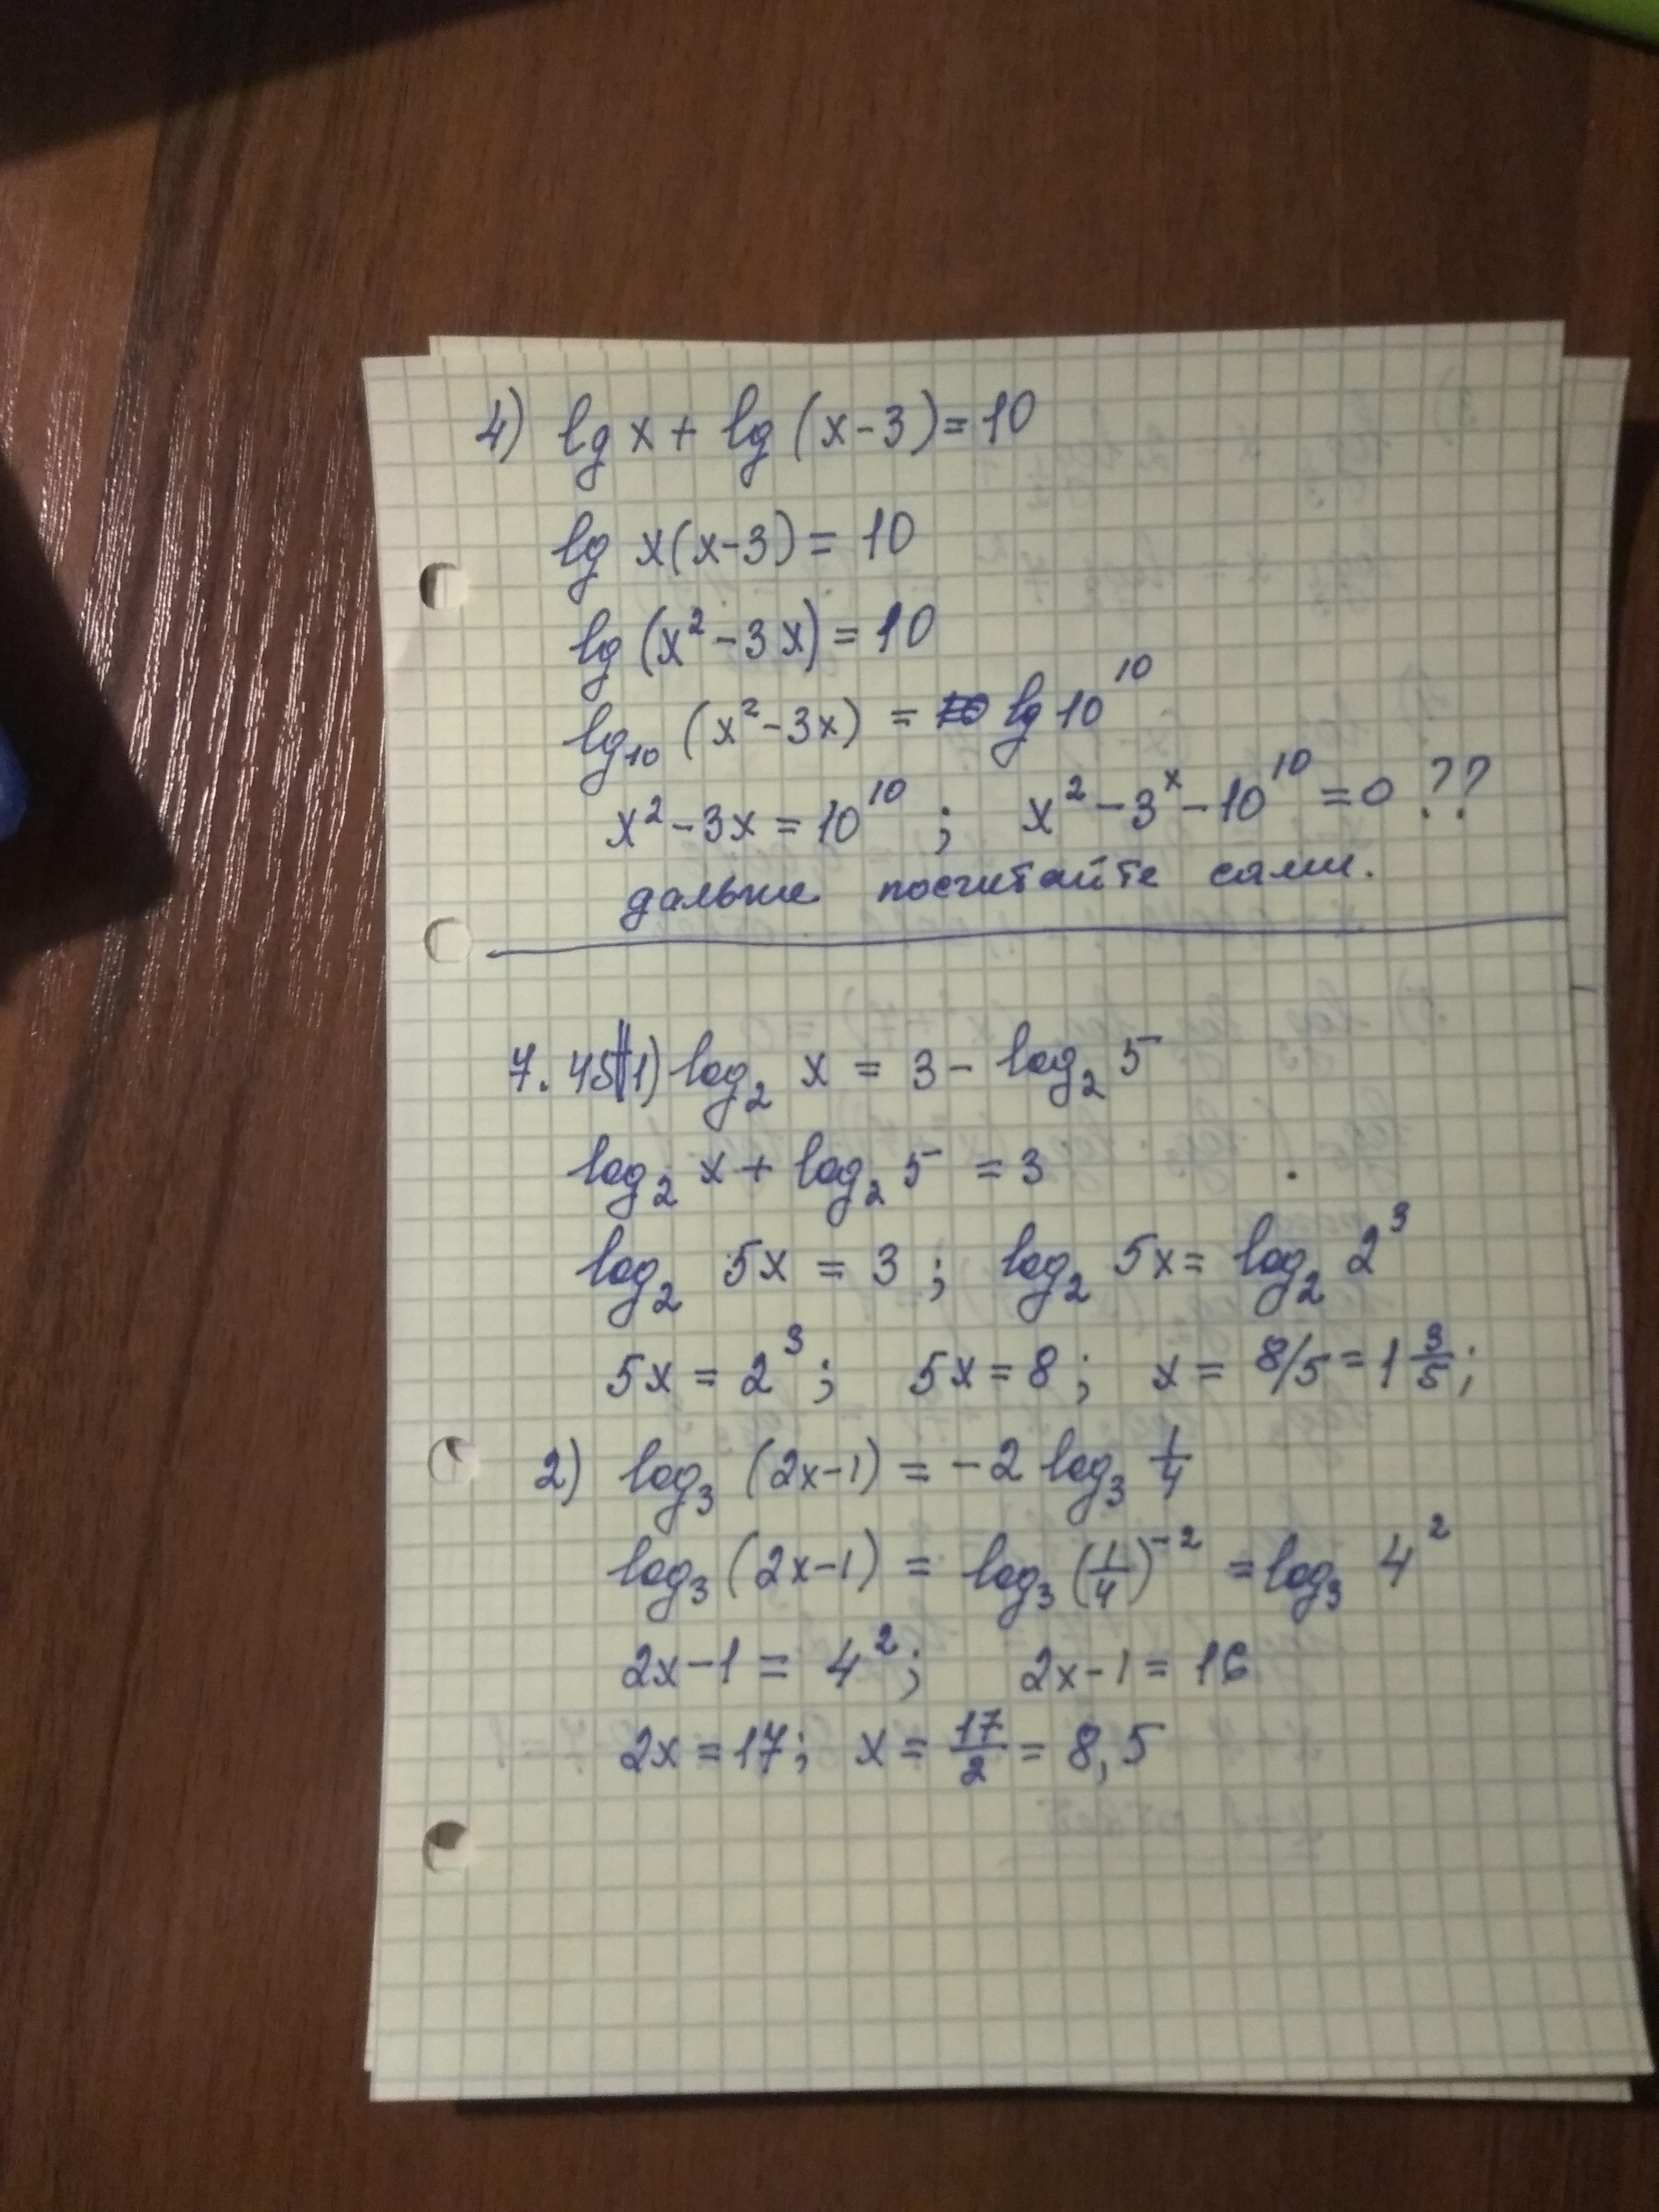 4) lg x + lg (x-3) = 10
lg x(x-3) = 10
lg (x² - 3x) = 10
lg₁₀ (x² - 3x) = lg 10¹⁰
x² - 3x = 10¹⁰ ; x² - 3ˣ - 10¹⁰ = 0 ??
дальше посчитайте сами.
7. 45 1) log₂ x = 3 - log₂ 5
log₂ x + log₂ 5 = 3
log₂ 5x = 3 ; log₂ 5x = log₂ 2³
5x = 2³ ; 5x = 8 ; x = 8/5 = 1 3/5 ;
2) log₃ (2x-1) = -2 log₃ 1/4
log₃ (2x-1) = log₃ (1/4)⁻² = log₃ 4²
2x-1 = 4² ; 2x-1 = 16
2x = 17 ; x = 17/2 = 8,5